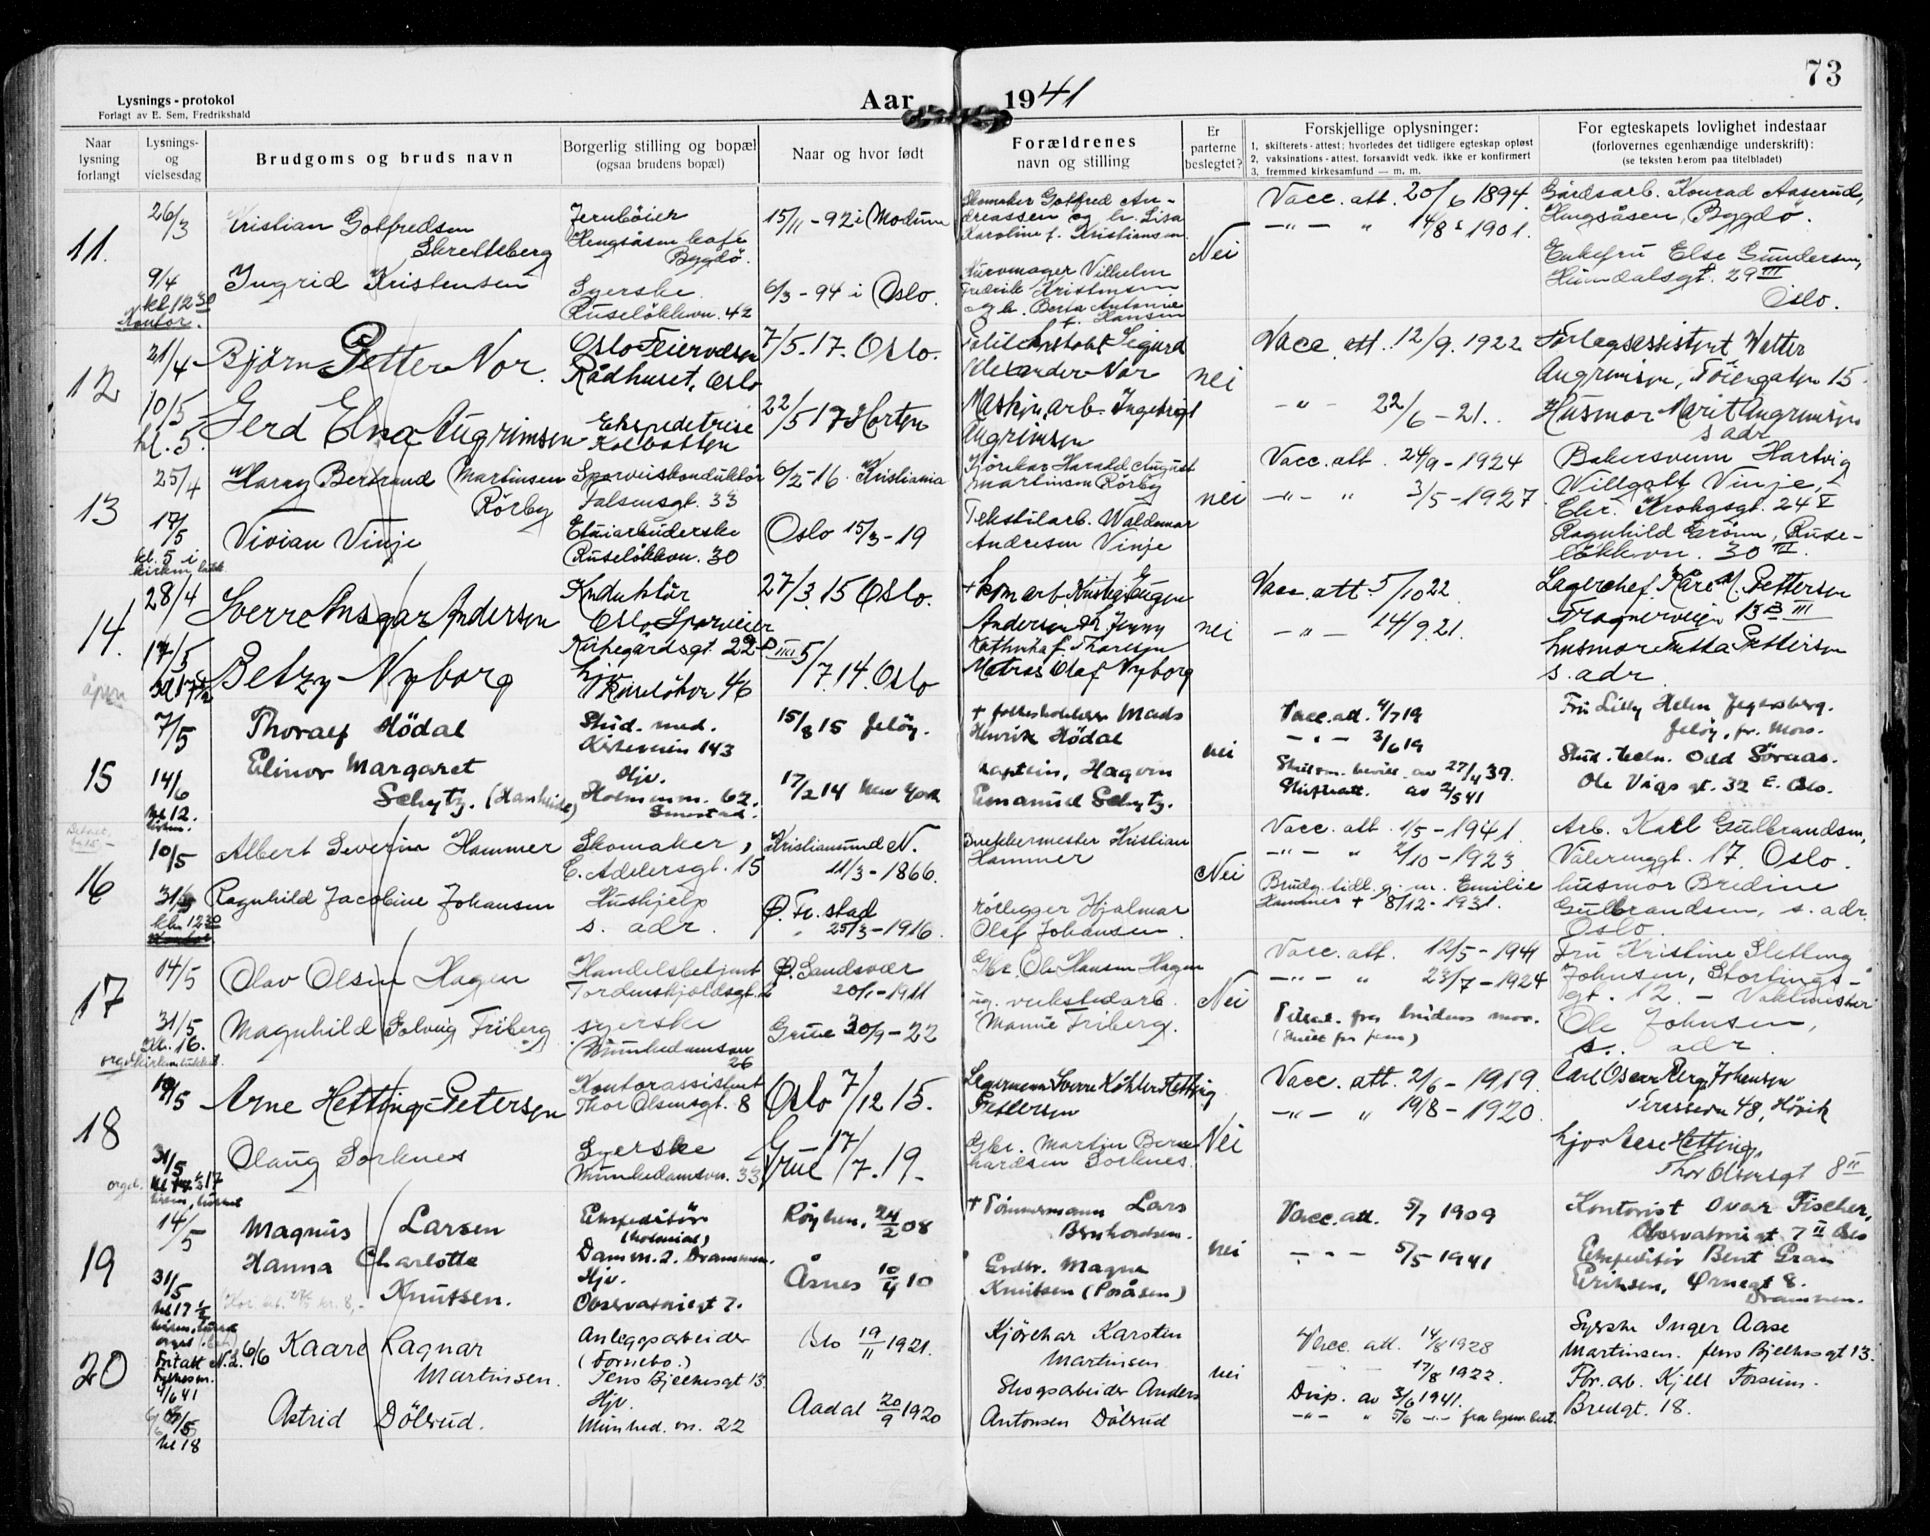 73
Lysnings-protokol
Forlagt av E. Sem, Fredrikshald
Aar 1941
Naar lysning forlangt
Lysnings- og vielsesdag
Brudgoms og bruds navn
Borgerlig stilling og bopæl
(ogsaa brudens bopæl)
Naar og hvor født
Forældrenes
navn og stilling
Er parterne beslegtet?
Forskjellige oplysninger:
1. skifterets-attest; hvorledes det tidligere egteskap opløst
2. vaksinations-attest, forsaavidt vedk. ikke er konfirmert
3. fremmed kirkesamfund — m. m.
For egteskapets lovlighet indestaar
(forlovernes egenhændige underskrift):
(se teksten herom paa titelbladet)
11.
26/3
Kristian Gotfredsen
Skretteberg
Jernbøier
Hengsåsen Café
Bygdö.
15/11-92 i Modum
Skomaker Gotfred An-
dreassen og h. Lisa
Karoline f. Kristiansen
Nei
Vacc. att. 20/6 1894.
—"— " 14/8 1901.
Gårdsarb. Konrad Aaserud,
Hengsåsen, Bygdö.
9/4
kl 12 30
Kontor.
Ingrid Kristensen
Syerske
Ruselökkvn. 42
6/3-94 i Oslo.
Kurvmager Vilhelm
Fredrik Kristensen
og h. Berta Antonie
f. Hansen
Enkefru Else Gundersen,
29 III
Oslo.
12
21/4
Björn Petter Nor.
Oslo Feiervæsen
Rådhuset, Oslo
7/5.17. Oslo.
Sigurd
Alexander Nor
nei
Vacc. att. 12/9. 1922
Forlagsassistent Walter
Angrimsen, Töiengaten 15.
10/5
kl. 5.
Gerd Elna Angrimsen
Ekspeditrise
Kolbotten
22/5 17 Horten
Maskinarb. Ingebrigt
Angrimsen
—"— 22/6-21.
Husmor Marit Angrimsen
s adr
13
25/4
Harry Bertrand Martinsen
Rörby
Sporveiskonduktör
Falsensgt. 33
6/2-16 Kristiania
Kjörekar Harald August
Martinsen Rörby
nei
Vacc. att. 24/9-1924
—"— " 3/5-1927
Bakersvenn Hartvig
Willgott Vinje,
Chr. Krohgsgt. 24 V
17/5
kl. 5 i
kirken,
Vivian Vinje
Etuiarbeiderske
Ruselökkvn. 30
Oslo 15/3-19
Tekstilarb. Waldemar
Andresen Vinje
Ragnhild Grönn, Ruse-
lökkvn. 30 II.
14.
28/4
Sverre Ansgar Andersen
Konduktör
Oslo Sporveier
Kirkegårdsgt. 22 III
27/3.15 Oslo.
Eugen
Andersen h. Jenny
f. Thoresen
nei
Vacc. att. 5/10 22
—"— 14/9 21.
Lagerchef Kåre M. Pettersen
Frognerveien III
17/5
åpen
Betzy Nyborg
hjv
46
5/7.14. Oslo
Olaf Nyborg
husmor Pettersen
s. adr.
15
7/5
Thoralf Hödal
Stud. med.
Kirkeveien 143
15/8 15 Jelöy.
+ folkeskolelærer Mads
Henrik Hödal
nei
Vacc. att. 4/7 19
—"— 3/6 19
Fru Lilly Helen Jegersberg.
Jelöy, pr. Moss.
14/6
kl 12.
Elinor Margaret
Schytz. (Hanheide)
Hjv.
Holmenvn. 62.
Smestad.
17/2 14 New York
Kaptein, Hagvin
Emanuel Schytz.
Skilsm. bevill. av 27/4 39.
Skifteatt. av 2/5 41
Stud. tekn. Odd Söraas.
Ole Vigs gt. 32 E. Oslo.
16
10/5
Albert Severin Hammer
Skomaker,
C. Adelersgt. 15
Kristiansund N.
11/3-1866.
Snekkermester Kristian
Hammer
Nei
Vacc. att. 1/5-1941.
—"— " 2/10-1923
Arb. Karl Gulbrandsen,
Vålerenggt. 17, Oslo.
31/5
kl. 12 30
Ragnhild Jacobine Johansen
Hushjelp
s. adr.
Ø. Fr. stad
" 25/3-1916.
rörlegger Hjalmar
Olaf Johansen.
Brudg. tidl. g. m. Emilie
Hammer + 8/12-1931.
husmor Bredine
Gulbrandsen, s. adr.
Oslo
17
14/5
Olav Olsen Hagen
Handelsbetjent
Tordenskjoldsgt.
Ø. Sandsvær
20/1-1911
Gbr. Ole Hansen Hagen
Nei
Vacc. att. 12/5-1941
—"— " 23/7-1924
Fru Kristine Sletteng
Johnsen, Stortings-
gt. 12. — Vaktmester
31/5
kl. 16.
Magnhild Solveig Friberg
syerske
Munkedamsvn
26
Grue 30/9-22
ug. verkstedarb.
Manne Friberg.
Tillat. fra brudens mor.
Ole Johnsen,
s. adr.
18
Arne Hetting-Petersen
Kontorassistent
Thor Olsensgt. 8
Oslo 7/12 15.
Lagermann Sverre Köhler Hetting
Pettersen
Nei
Vacc. att. 2/6-1919.
—"— " 19/8-1920.
Carl Oscar Berg Johansen
48, Hövik
31/5
Olaug Sorknes
Syerske
Munkedamsvn. 33
Grue 17/7.19.
Gbr. Martin Bern-
hardsen Sorknes.
Hetting,
Thor Olsensgt 8 II
19
14/5
Magnus Larsen
Ekspeditör
(kolonial)
Damvn. 2. Drammen.
Röyken, 24/2 08
+ Tömmermann Lars
Bernhardsen.
nei
Vacc. att. 5/7 1909
—"— 5/5-1941
Kontorist Ovar Fischer,
Observatoriegt 7 II Oslo
31/5
kl 17 1/2
Hanna Charlotte
Knutsen.
Hjv.
Observatoriegt 7.
Åsnes 10/4 10
Grdbr. Magne
Knutsen (Poråsen)
Ekspeditör Bent Gran
Eriksen, Ørnegt 8.
Drammen.
20
6/6
Kaare Ragnar
Martinsen.
Anleggsarbeider
(Fornebo.)
Jens Bjelkesgt 13.
Oslo 19/11 1921.
Kjörekar Karsten
Martinsen
nei
Vacc. att. 14/8 1928
17/8 1922.
Syerske Inger Aase
Martinsen. Jens Bjelkesgt 13.
kl 18
Astrid Dölerud.
Hjv.
Munked. vn. 22
Aadal 20/9 1920
Skogsarbeider Anders
Antonsen Dölerud
Disp. av 3/6 1941.
—"— " 5/6 —"— fra lysn. best.
Fbr. arb. Kjell Fossum.
Bredgt. 18.